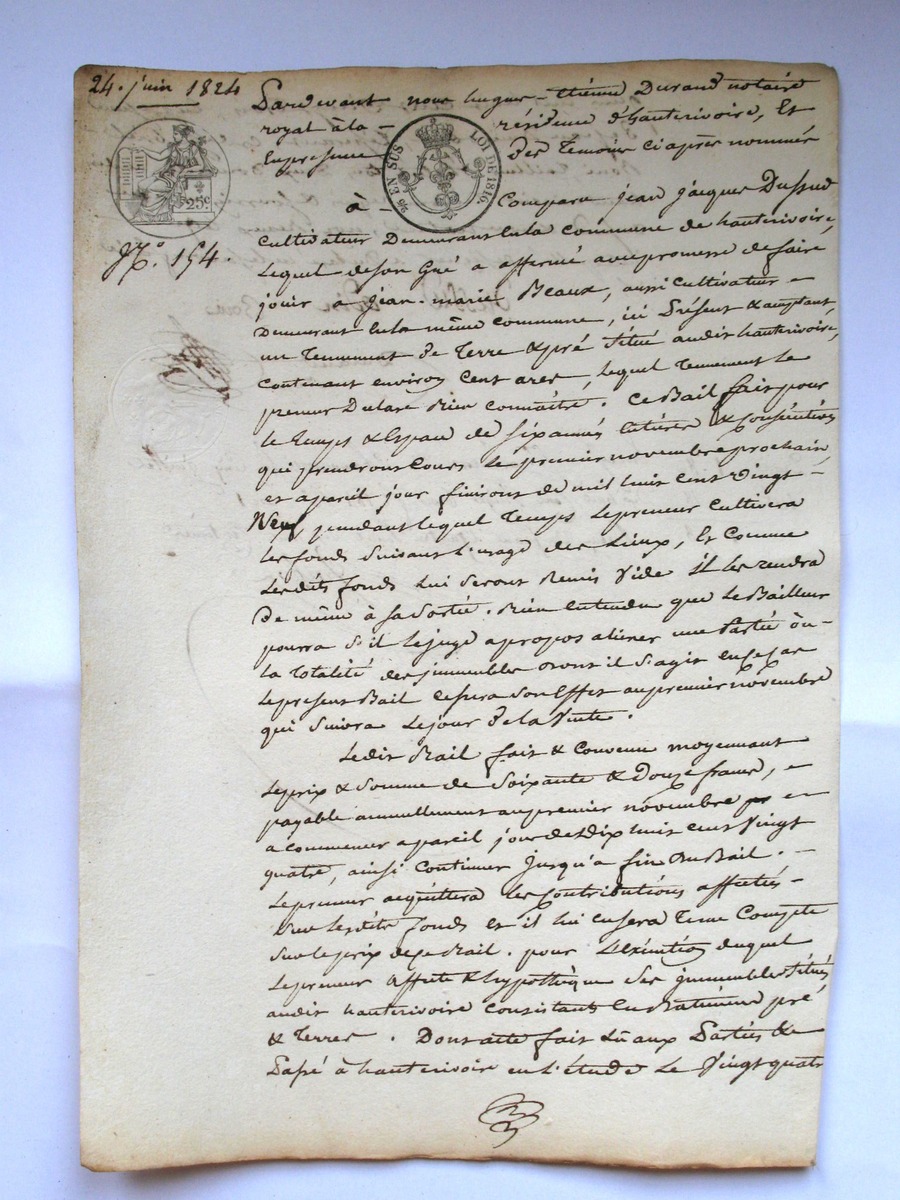 24. juin 1824
Pardevant nous hugue-thiéne Durand notaire
royal à la - résidence d'hauterivoire, Et
En presence Des Temoins Ci après nommés
9/6 EN SUS LOI DE 1816.
25c
à - Compara jean jacques Dussud
Cultivateur Demeurant En la commune de hauterivoire,
Lequel de son Gré a affermé avec promesse de faire
N.o 154.
jouir a jean-marie Beaux, aussi Cultivateur -
Demeurant En la même commune, ici Présent & acceptant,
un Tennement De Terre & pré situé audit hauterivoire,
contenant environ Cent ares, Lequel Tennement Le
preneur Declare Bien connaître. Ce Bail fait pour
le Temps & Espace de six années Entieres & Consécutives
qui prendront Cours Le premier novembre prochain,
et a pareil jour finiront de mil huit cent vingt -
pendant lequel Temps Le preneur Cultivera
Les fonds Suivant L'usage des Lieux, Et Comme
Lesdits fonds Lui Seront Remis Vide Il les rendra
De même à sa Sortie. Bien Entendu que Le Bailleur
pourra S'il Le juge a propos aliéner une Partie où
la Totalité des immeubles dont il S'agit en ce cas
Le present Bail Cessera Son Effet au premier novembre
qui Suivra Le jour De la Vente.
Ledit Bail fait & Convenu moyennant
Le prix & Somme de Soixante & Douze francs, -
payable annuellement au premier novembre
a commencer a pareil jour de dix huit cent Vingt
quatre, ainsi continuer jusqu'a fin Du Bail. -
Le preneur acquittera Les Contributions affectés -
Sur Lesdits fonds et il lui en sera Tenu Compte
Sur Le prix de ce Bail. pour L'exécution duquel
Le preneur affecte & hypothèque Ses immeubles Situés
audit hauterivoire Consistants En Batiments pré
& Terres. Dont acte fait Lû aux Parties &
Passé à hauterivoire en L'étude Le Vingt quatre